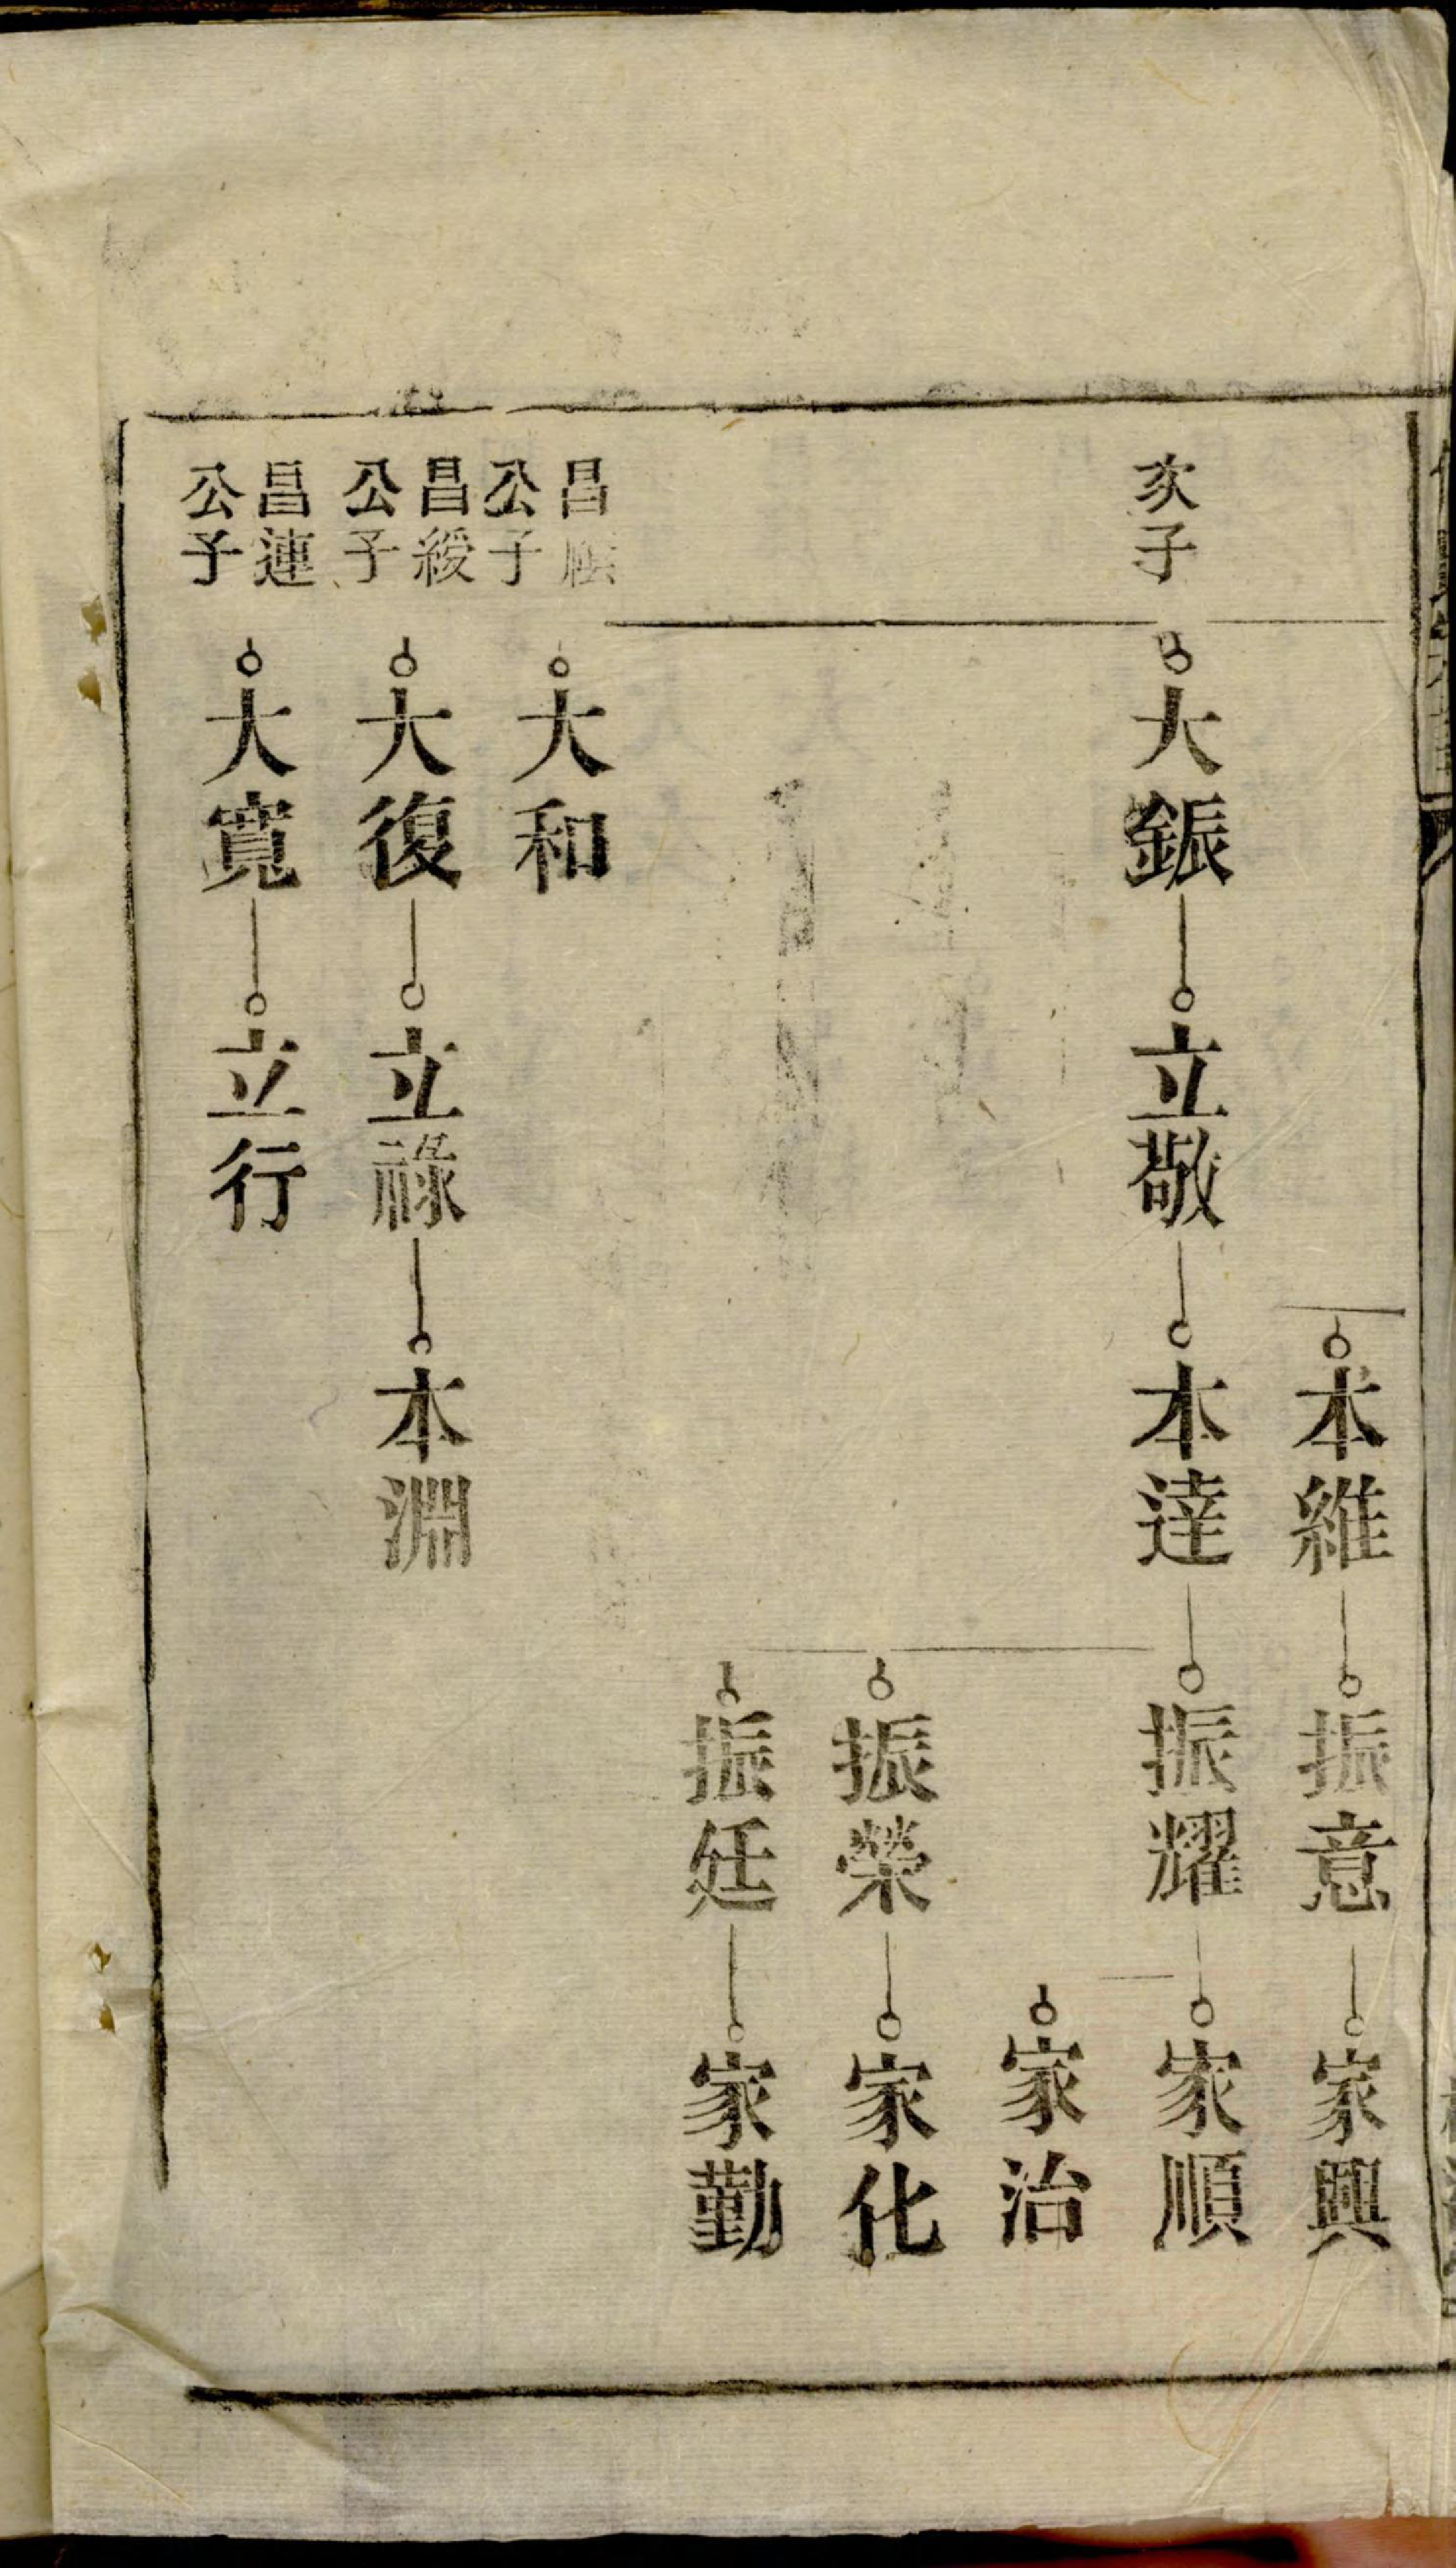 本維 振意 家興
次子
大鋠 立敬 本達 振耀 家順
家治
振榮 家化
振廷 家勤
昌
公子
大和
昌綬
公子
大復 立祿 本淵
昌蓮
公子
大寬 立行